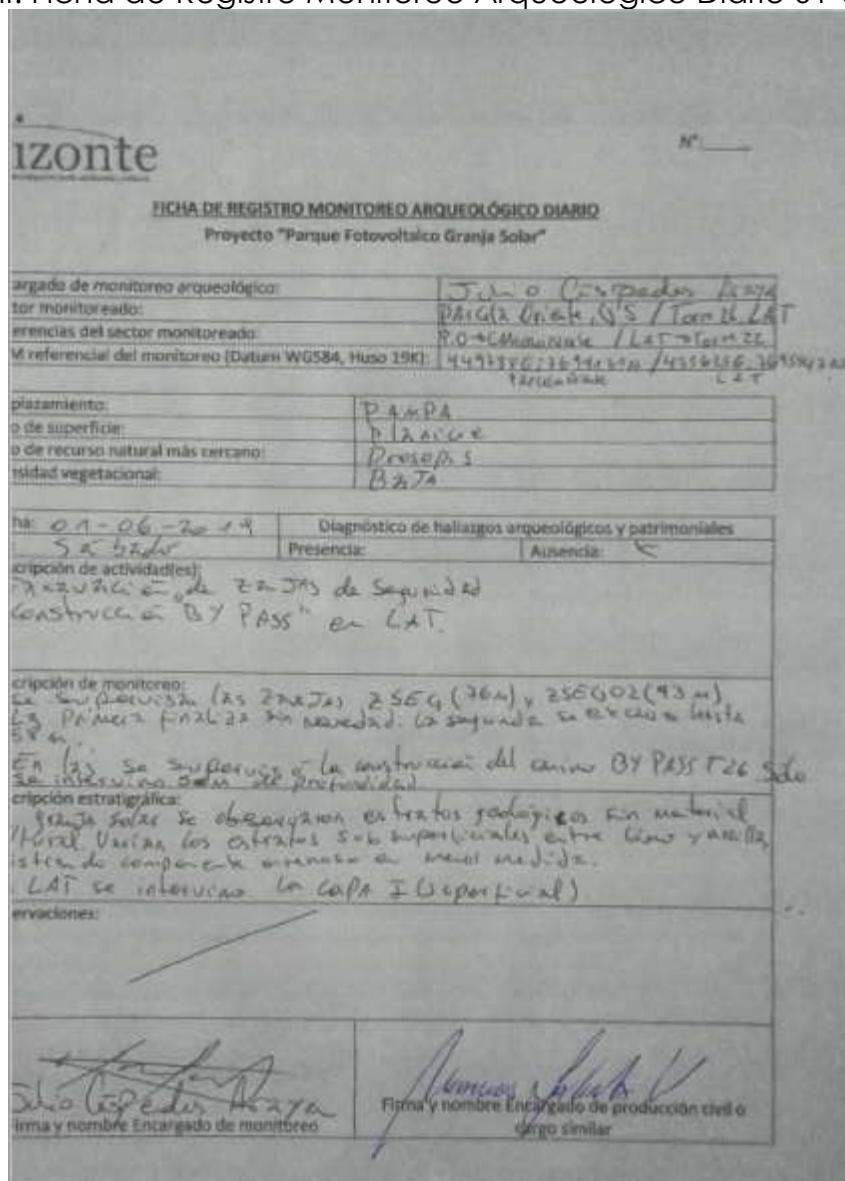 Ficha de Registro Monitoreo Arqueológico Diario 01
izonte
N°:
FICHA DE REGISTRO MONITOREO ARQUEOLÓGICO DIARIO
Proyecto "Parque Fotovoltaico Granja Solar"
argado de monitoreo arqueológico: Julio Céspedes Araya
tor monitoreado: Oriente, / LAT
erencias del sector monitoreado: / LAT
M referencial del monitoreo (Datum WGS84, Huso 19K):
LAT
plazamiento: PAMPA
o de superficie: Planicie
o de recurso natural más cercano: Prosopis
nsidad vegetacional: BAJA
ha: 01-06-2019 Diagnóstico de hallazgos arqueológicos y patrimoniales
Sábado Presencia: Ausencia:
cripción de actividad(es):
de zanjas de Seguridad
Construcción "BY PASS" en LAT.
cripción de monitoreo:
Se supervisan las zanjas ZSEG (36m) y ZSEG02 (93 m),
La Primera finaliza sin novedad. La segunda se excava hasta
58 m.
En las se supervisó la construcción del camino BY PASS T26 Solo
se intervino profundidad.
cripción estratigráfica:
granja solar se observaron estratos geológicos sin material
ltural Varian los estratos sub superficiales entre limo y arcilla,
componente arenoso en menor medida.
LAT se intervino la capa I (superficial).
ervaciones:
Julio Céspedes Araya
irma y nombre Encargado de monitoreo
Firma y nombre Encargado de producción civil o
cargo similar